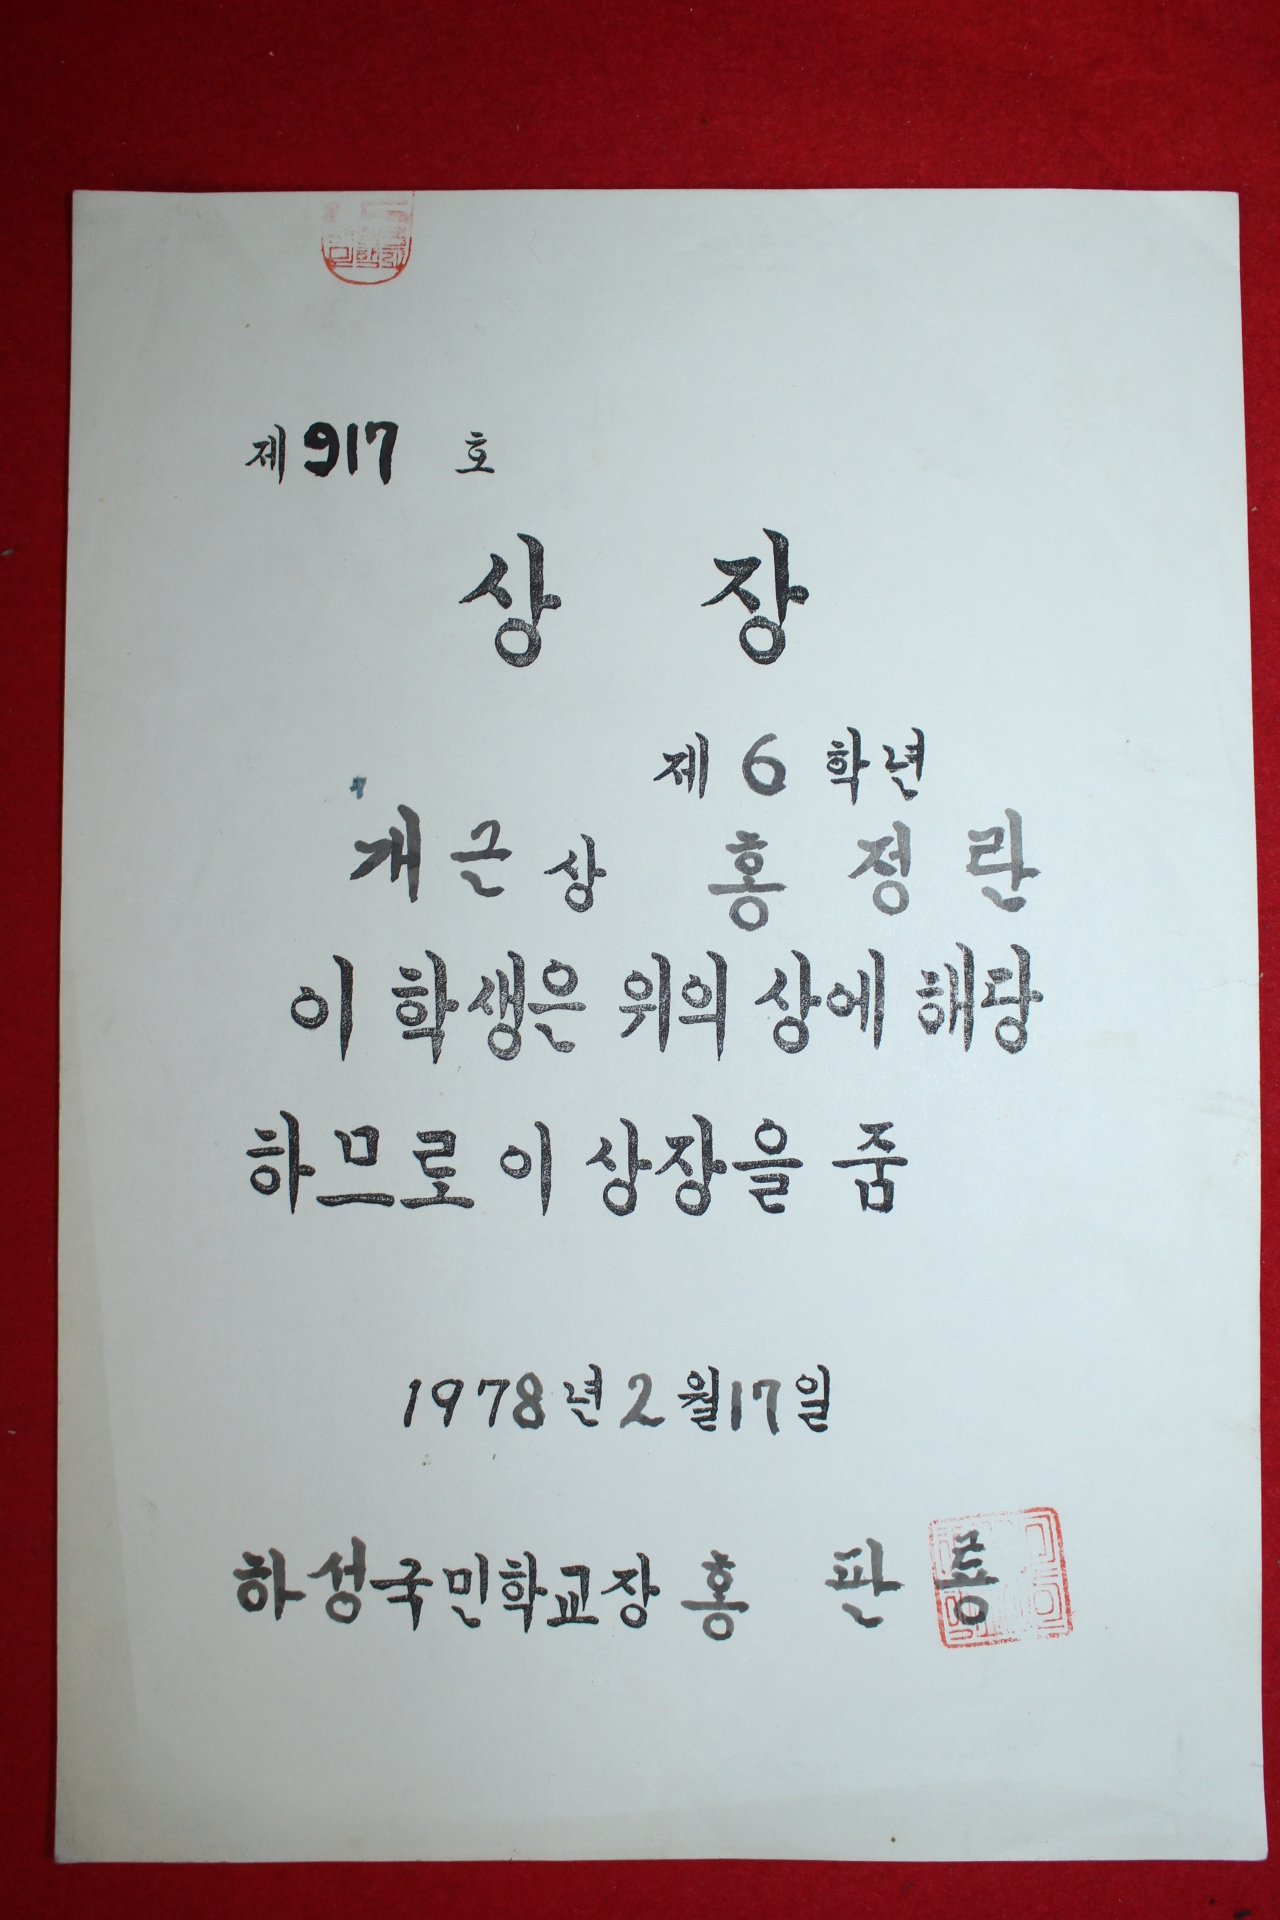 제 917 호
상 장
제 6 학년
개근상 홍정란
이 학생은 위의 상에 해당
하므로 이 상장을 줌
1978년 2월 17일
하성국민학교장 홍 판